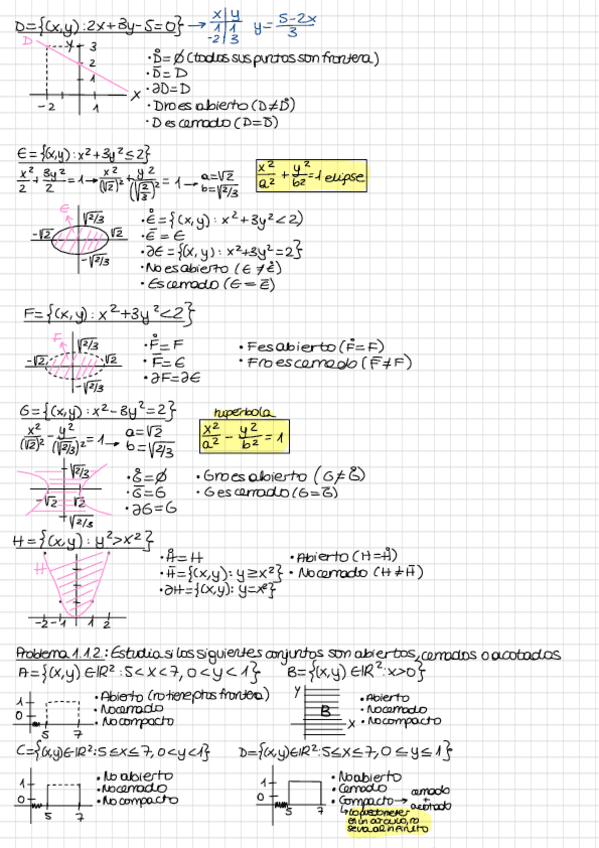 D={(x,y):2x+3y-5=0} → x y 1 1 -2 3 y=5-2x/3
D y 3 2 1 -2 1 x
• D̊=∅ (todos sus puntos son frontera)
• D̄=D
• ∂D=D
• D no es abierto (D≠D̊)
• D es cerrado (D=D̄)
E={(x,y):x²+3y²≤2}
x²/2+3y²/2=1→x²/(√2)²+y²/(√2/3)²=1→a=√2 b=√2/3 x²/a²+y²/b²=1 elipse
E √2/3 -√2 √2 -√2/3
• E̊={(x,y):x²+3y²<2}
• Ē=E
• ∂E={(x,y):x²+3y²=2}
• No es abierto (E≠E̊)
• Es cerrado (E=Ē)
F={(x,y):x²+3y²<2}
F √2/3 -√2 √2 -√2/3
• F̊=F • F es abierto (F̊=F)
• F̄=E • F no es cerrado (F̄≠F)
• ∂F=∂E
G={(x,y):x²-3y²=2} hipérbola
x²/(√2)²-y²/(√2/3)²=1→a=√2 b=√2/3 x²/a²-y²/b²=1
√2/3 -√2 √2 -√2/3
• G̊=∅ • G no es abierto (G≠G̊)
• Ḡ=G • G es cerrado (G=Ḡ)
• ∂G=G
H={(x,y):y²>x²}
H -2 -1 1 2
• H̊=H • Abierto (H=H̊)
• H̄={(x,y):y≥x²} • No cerrado (H≠H̄)
• ∂H={(x,y):y=x²}
Problema 1.1.2: Estudia si los siguientes conjuntos son abiertos, cerrados o acotados
A={(x,y)∈ℝ²:5<x<7,0<y<1} B={(x,y)∈ℝ²:x>0}
1 0 5 7
• Abierto (no tiene ptos frontera)
• No cerrado
• No compacto
y B x
• Abierto
• No cerrado
• No compacto
C={(x,y)∈ℝ²:5≤x≤7,0<y<1} D={(x,y)∈ℝ²:5≤x≤7,0≤y≤1}
1 0 5 7
• No abierto
• No cerrado
• No compacto
1 0 5 7
• No abierto
• Cerrado
• Compacto → cerrado + acotado
↳ lo puedo meter
en un círculo, no
se va al infinito